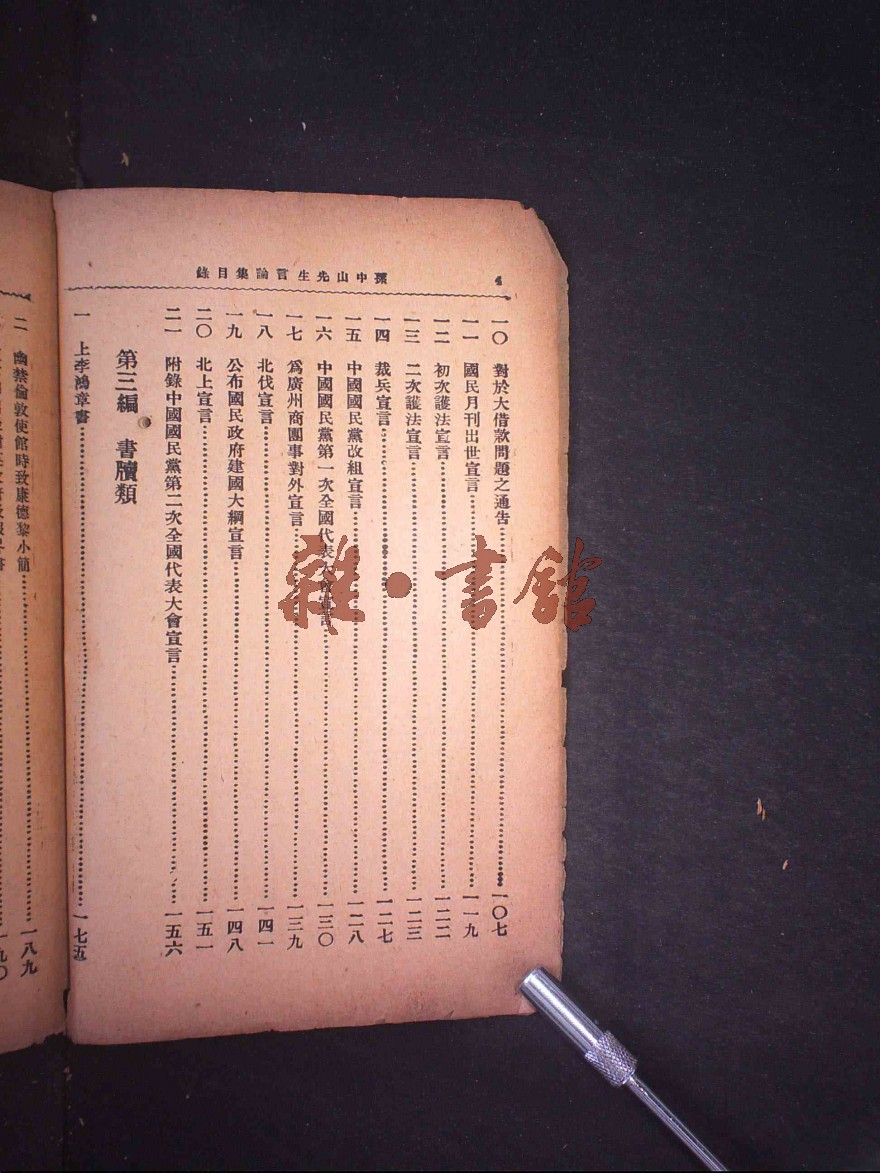 孫中山先生言論集目錄
4
一〇 對於大借款問題之通告 一〇七
一一 國民月刊出世宣言 一一九
一二 初次護法宣言 一二二
一三 二次護法宣言 一二三
一四 裁兵宣言 一二七
一五 中國國民黨改組宣言 一二八
一六 中國國民黨第一次全國代表大會宣言 一三〇
一七 爲廣州商團事對外宣言 一三九
一八 北伐宣言 一四一
一九 公布國民政府建國大綱宣言 一四八
二〇 北上宣言 一五一
二一 附錄中國國民黨第二次全國代表大會宣言 一五六
第三編 書牘類
一 上李鴻章書 一七五
二 幽禁倫敦使館時致康德黎小簡 一八九
一九〇
雜·書館